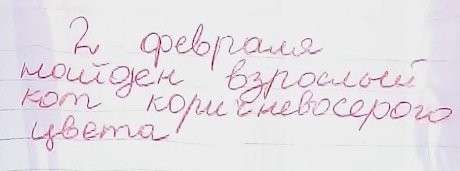 2 февраля
найден взрослый
кот коричневосерого
цвета